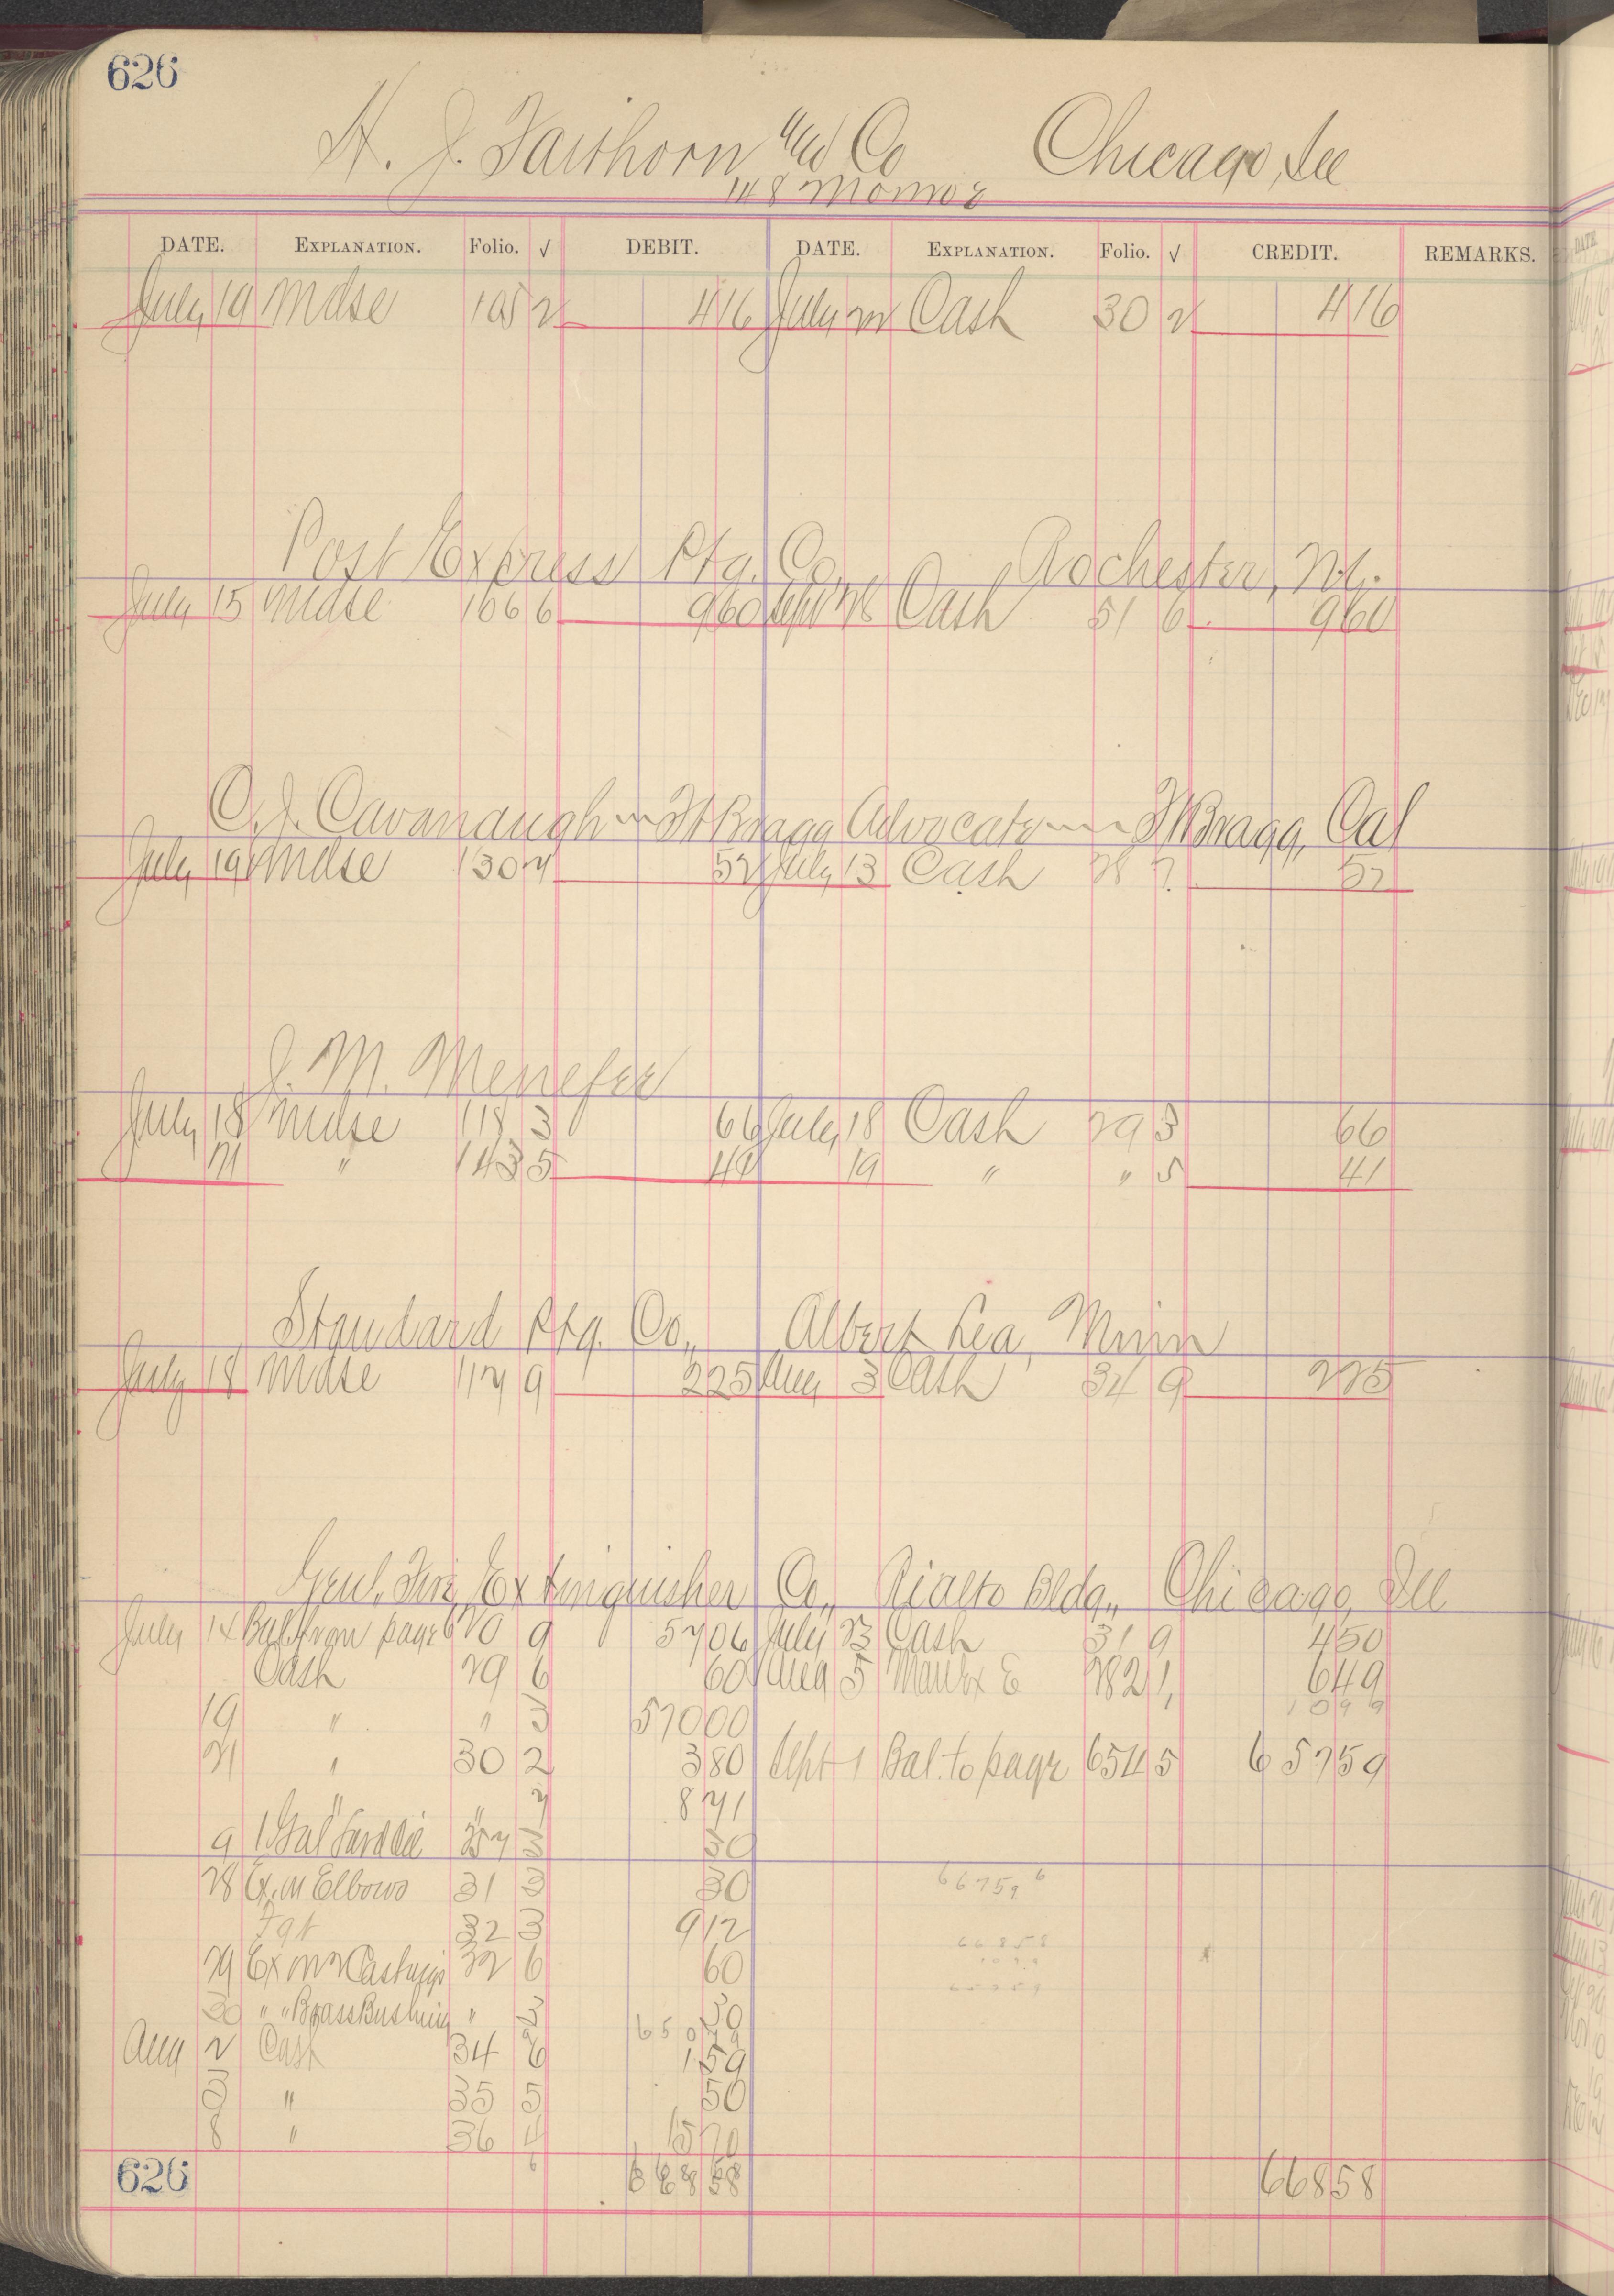 626
H. J. Faithorn and Co Chicago, Ill
148 Monroe
DATE. EXPLANATION. Folio. √ DEBIT. DATE. EXPLANATION. Folio. √ CREDIT. REMARKS.
July 19 Mdse 105 2 4 16 July 22 Cash 30 2 4 16
Post Express Ptg. Co. Rochester, N.Y.
July 15 Mdse 106 6 9 60 Sept 28 Cash 51 6 9 60
C. J. Cavanaugh Ft Bragg Advocate Ft Bragg, Cal
July 19 Mdse 130 7 52 July 13 Cash 28 7 52
J. M. Menefee
July 18 Mdse 118 3 66 July 18 Cash 29 3 66
21 " 143 5 41 19 " " 5 41
Standard Ptg. Co., Albert Lea, Minn
July 18 Mdse 117 9 2 25 Aug 3 Cash 34 9 2 25
Genl. Fire Extinguisher Co., Rialto Bldg., Chicago, Ill
July 14 Bal. from page 620 9 57 06 July 23 Cash 31 9 4 50
Cash 29 6 60 Aug 5 Manfx E 282 1 6 49
19 " " 3 570 00 10 99
21 " 30 2 3 80 Sept 1 Bal. to page 654 5 657 59
" " 7 8 71
9 1 Gal Lard Oil 257 3 30
28 Ex. on Elbows 31 3 30
667 59
Fgt 32 3 9 12
668 58
29 Ex on 2 Castings 32 6 60
10 99
657 59
30 " " Brass Bushing " 3 30
650
Aug 2 Cash 34 6 1 59
3 " 35 5 50
8 " 36 4 15 70
626 668 58 668 58